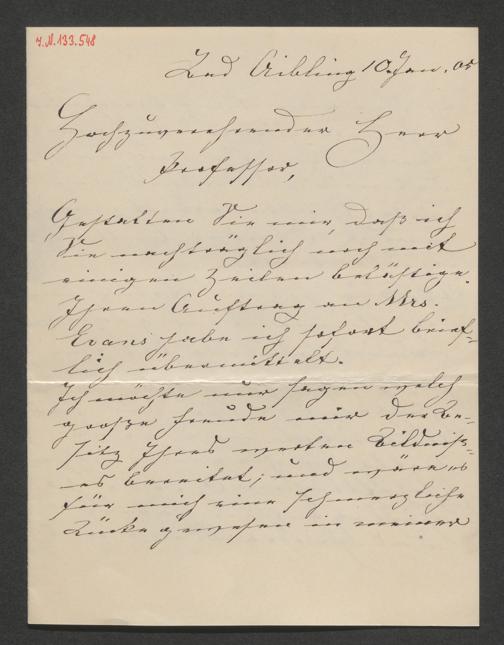 H.N.133.548
Bad Aibling 10. Jan. 05
Hochzuverehrender Herr
Professor,
Gestatten Sie mir, daß ich
Sie nachträglich noch mit
einigen Zeilen belästige.
Ihren Auftrag an Mrs.
Evans habe ich sofort brief-
lich übermittelt.
Ich möchte nur sagen welch
große Freude mir der Be-
sitz Ihres werten Bildniß-
es bereitet; und wäre es
für mich eine schmerzliche
Lücke gewesen in meiner